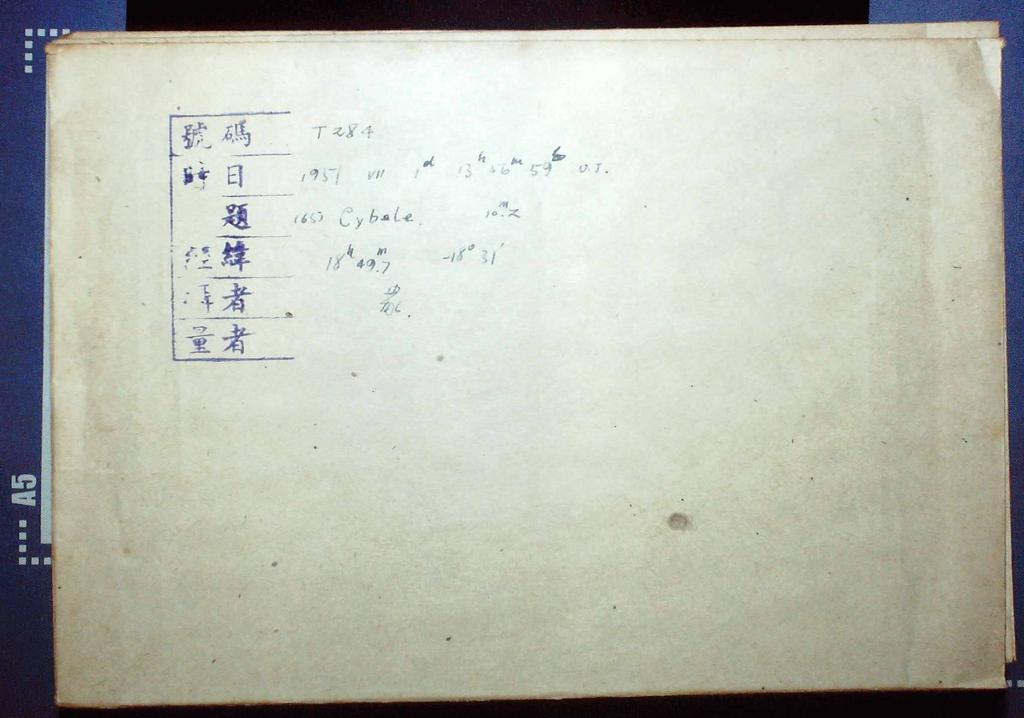 號碼 T 284
時日 1951 VII 1d 13h 56m 59s U.T.
題 (65) Cybele. 10m.2
經緯 18h 49m.7 -18° 31'
者
量者
A5